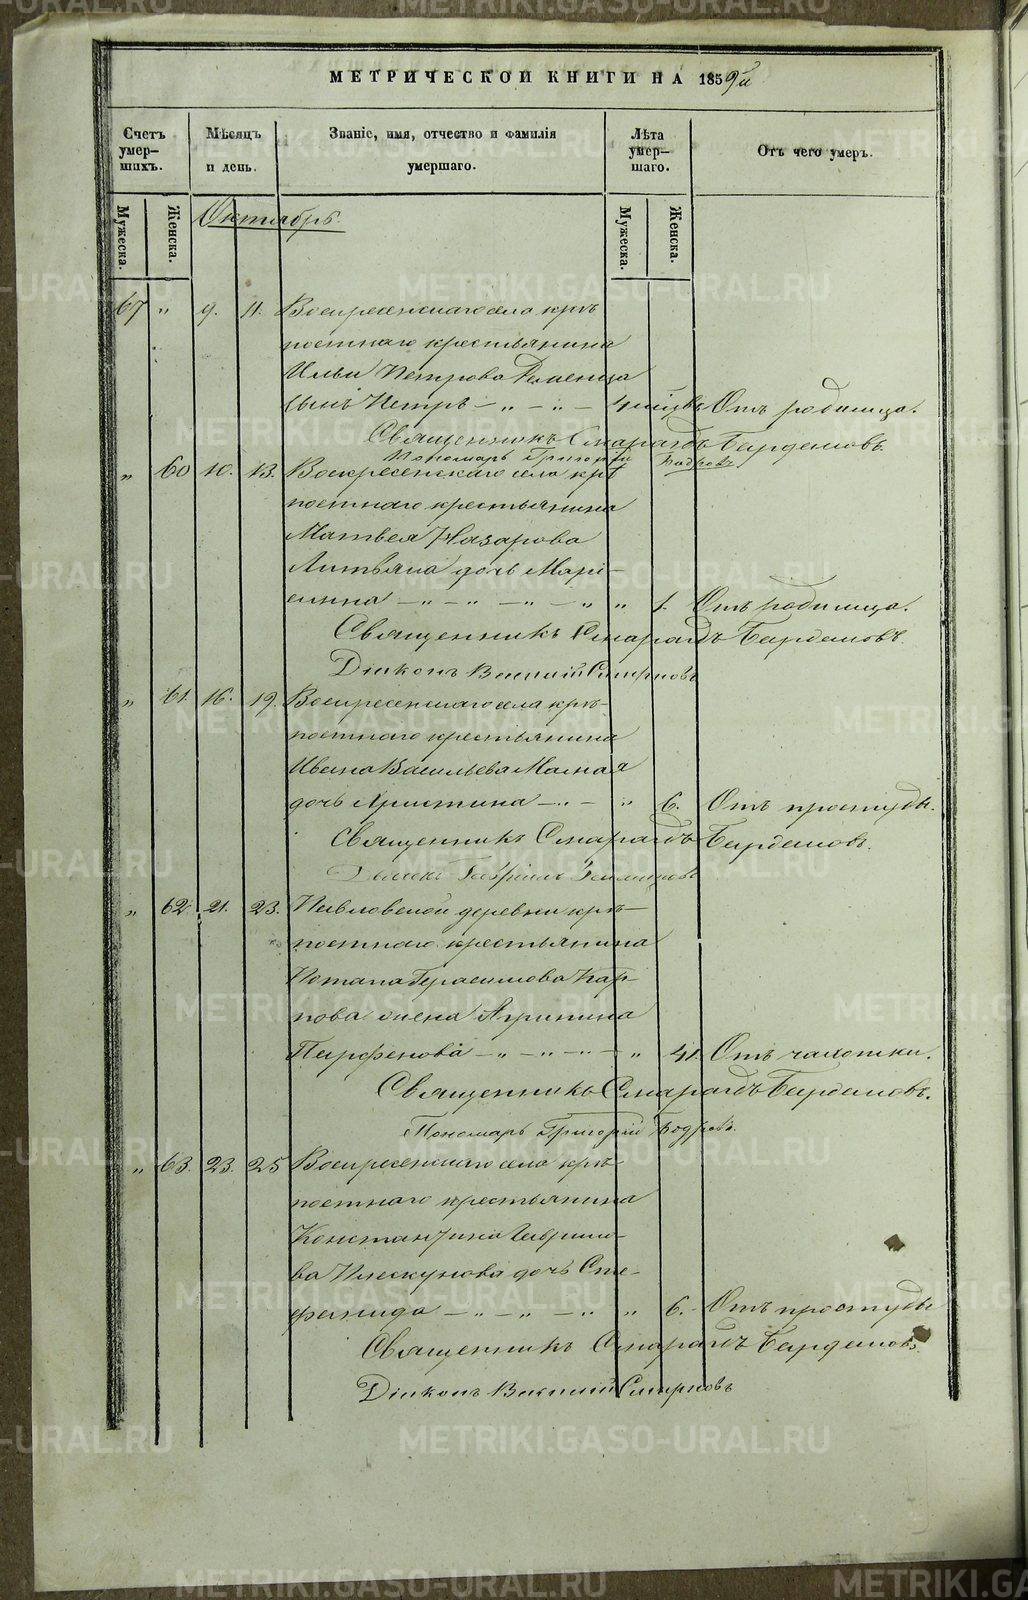 МЕТРИЧЕСКОЙ КНИГИ НА 1859й
Счетъ умер-шихъ.
Мѣсяцъ и день.
Званіе, имя, отчество и фамилія умершаго.
Лѣта умер-шаго.
Отъ чего умеръ.
Мужеска.
Женска.
Мужеска.
Женска.
Октябрь.
67 " 9. 11. Воскресенскаго села крѣ
постнаго крестьянина
Ильи Петрова
сынъ Петръ — " — " — 4 Отъ родимца.
Священникъ Смарагдъ Бардемовъ.
Пономарь Григорій Бодровъ
" 60 10. 13. Воскресенскаго села крѣ
постнаго крестьянина
Матвея Назарова
дочь Марі-
амна — " — " — " — " " 1. Отъ родимца.
Священникъ Смарагдъ Бардемовъ.
Діаконъ Василій Смирновъ
" 61. 16. 19. Воскресенскаго села крѣ-
постнаго крестьянина
Ивана Васильева
дочь Христина — " — " 6. Отъ простуды.
Священникъ Смарагдъ Бардемовъ.
" 62. 21. 23. Павловской деревни крѣ-
постнаго крестьянина
Потапа Герасимова Кар-
пова жена Агрипина
Парфенова — " — " — " — " 41. Отъ чахотки.
Священникъ Смарагдъ Бардемовъ.
Пономарь Григорій Бодровъ.
" 63. 23. 25 Воскресенскаго села крѣ-
постнаго крестьянина
Константина Гаврило-
ва Плескунова дочь Сте-
фанида — " — " — " " 6. Отъ простуды
Священникъ Смарагдъ Бардемовъ.
Діаконъ Василій Смирновъ
METRIKI.GASO-URAL.RU